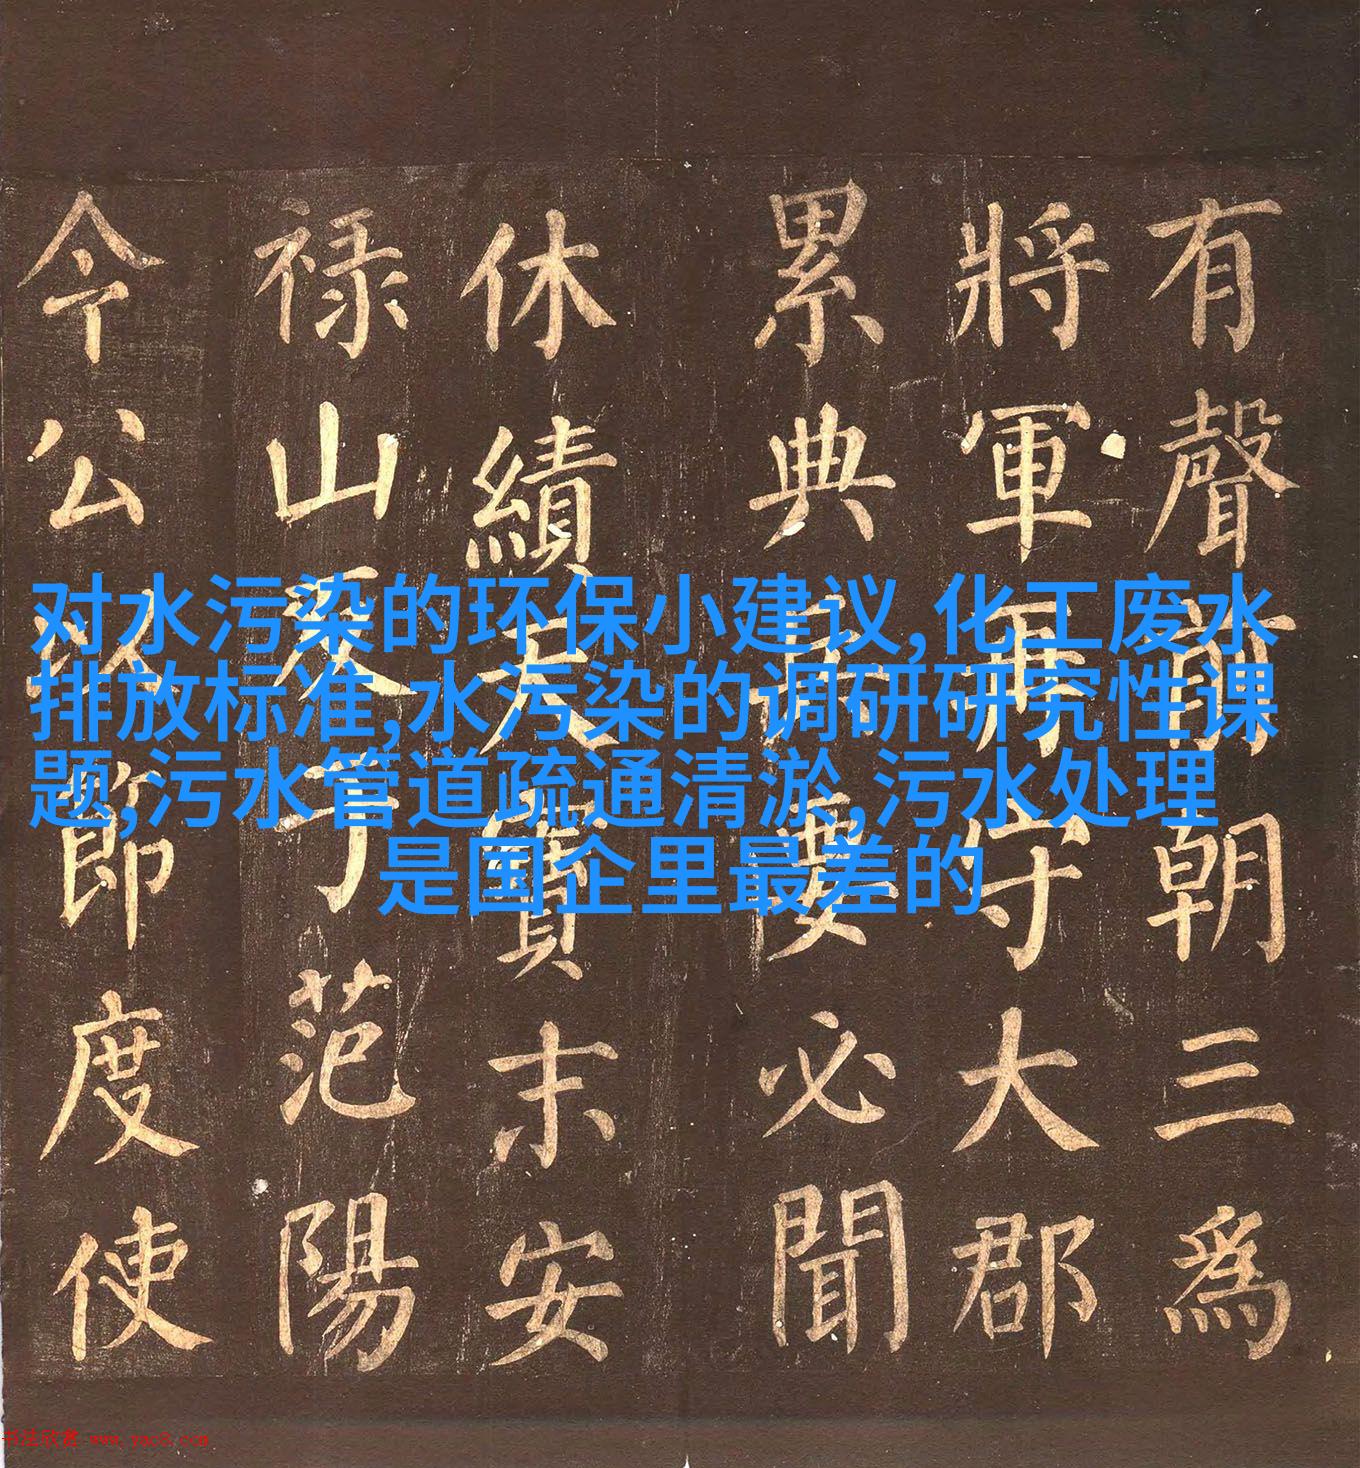 有聲前朝三爲
將軍再守大郡
累典兵要必聞
休績天寶末安
禄山反于范陽
令公以節度使
对水污染的环保小建议,化工废水
排放标准,水污染的调研研究性课
题,污水管道疏通清淤,污水处理
是国企里最差的
书法欣赏 www.yac8.com